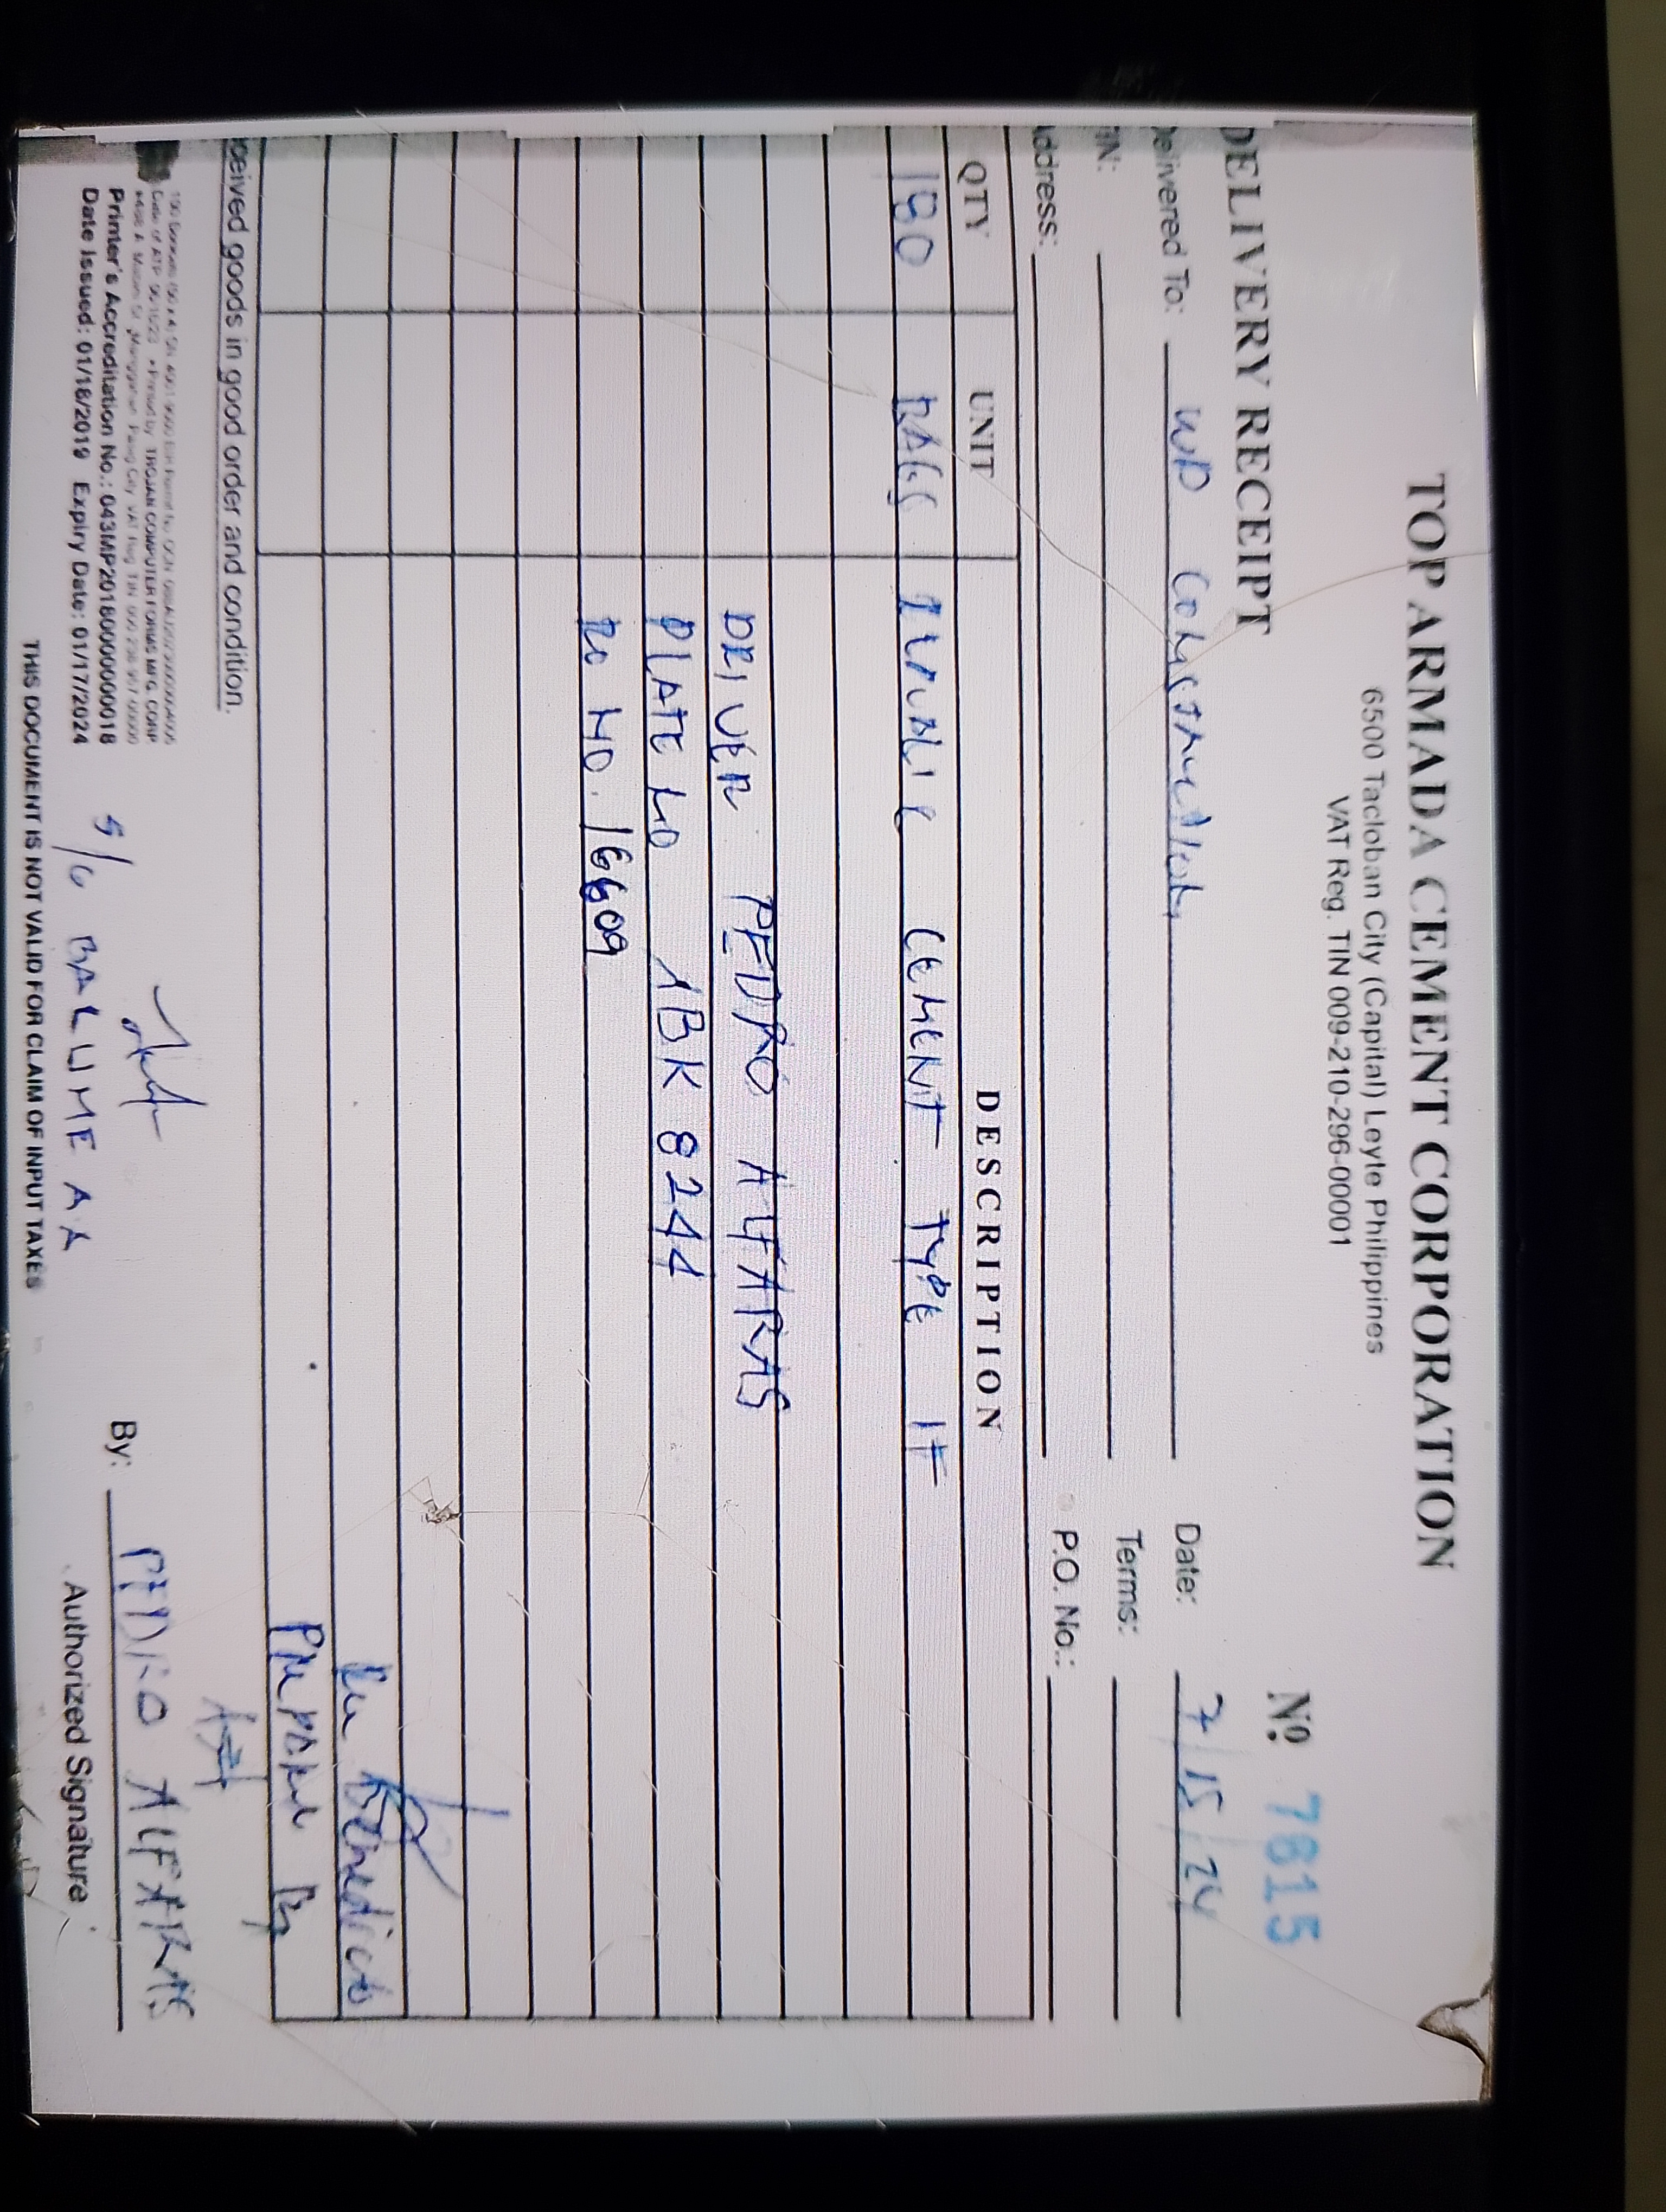 TOP ARMADA CEMENT CORPORATION
6500 Tacloban City (Capital) Leyte Philippines
VAT Reg. TIN 009-210-296-00001
DELIVERY RECEIPT
Nº 7815
elivered To: WD Date: 7/15/24
IN: Terms:
ddress: P.O. No.:
QTY UNIT DESCRIPTION
180 BAGS CEMENT TYPE 1T
DRIVER PEDRO ALFARAS
PLATE NO ABK 8244
NO. 16609
Benedicto
Prepared By
ceived goods in good order and condition.
Printed by TROJAN COMPUTER FORMS MFG. CORP
Printer's Accreditation No.: 043MP20180000000018
Date Issued: 01/18/2019 Expiry Date: 01/17/2024
S/G BALUME AA
By: PEDRO ALFARAS
Authorized Signature
THIS DOCUMENT IS NOT VALID FOR CLAIM OF INPUT TAXES